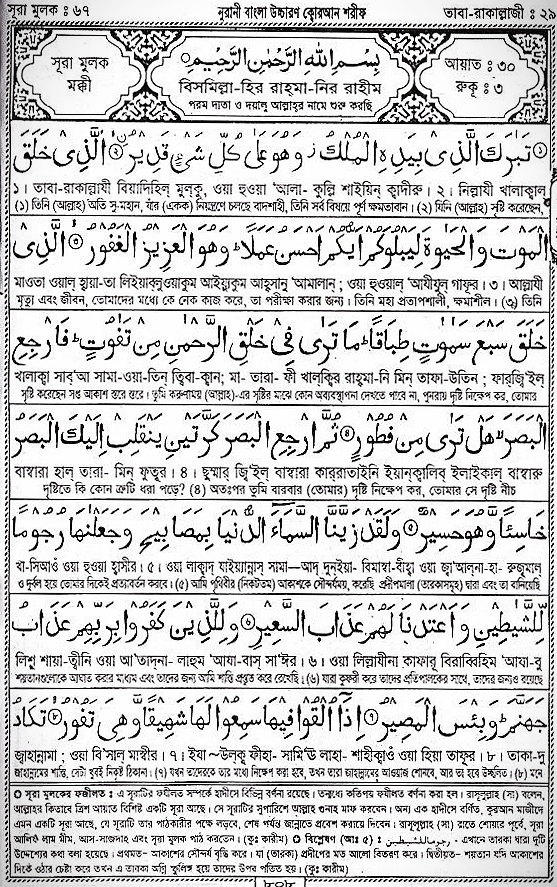 সূরা মুলক : ৬৭ নূরানী বাংলা উচ্চারণ কোরআন শরীফ তাবা-রাকাল্লাজী : ২৯
সূরা মুলক
মক্কী
بِسْمِ اللهِ الرَّحْمٰنِ الرَّحِيْمِ
বিসমিল্লা-হির রাহ্‌মা-নির রাহীম
পরম দাতা ও দয়ালু আল্লাহ্‌র নামে শুরু করছি
আয়াত : ৩০
রুকূ' : ৩
① تَبٰرَكَ الَّذِىْ بِيَدِهِ الْمُلْكُ ز وَهُوَ عَلٰى كُلِّ شَىْءٍ قَدِيْرُ ② نِ الَّذِىْ خَلَقَ
১। তাবা-রাকাল্লাযী বিয়াদিহিল্ মুল্‌কু, ওয়া হুওয়া 'আলা- কুল্লি শাইয়িন্ ক্বাদীরু। ২। নিল্লাযী খালাক্বাল্
(১) তিনি (আল্লাহ) অতি সু-মহান, যাঁর (একক) নিয়ন্ত্রণে চলছে বাদশাহী, তিনি সর্ব বিষয়ে পূর্ণ ক্ষমতাবান। (২) যিনি (আল্লাহ) সৃষ্টি করেছেন,
الْمَوْتَ وَالْحَيٰوةَ لِيَبْلُوَكُمْ اَيُّكُمْ اَحْسَنُ عَمَلًا ط وَهُوَ الْعَزِيْزُ الْغَفُوْرُ ③ الَّذِىْ
মাওতা ওয়াল্ হ্বায়া-তা লিইয়াব্‌লুওয়াকুম আইয়্যুকুম্ আহ্‌সানু 'আমালান্ ; ওয়া হুওয়াল্ 'আযীযুল্ গাফূর। ৩। আল্লাযী
মৃত্যু এবং জীবন, তোমাদের মধ্যে কে নেক কাজ করে, তা পরীক্ষা করার জন্য। তিনি মহা প্রতাপশালী, ক্ষমাশীল। (৩) তিনি
خَلَقَ سَبْعَ سَمٰوٰتٍ طِبَاقًا ط مَا تَرٰى فِىْ خَلْقِ الرَّحْمٰنِ مِنْ تَفٰوُتٍ ط فَارْجِعِ
খালাক্বা সাব্'আ সামা-ওয়া-তিন্ ত্বিবা-ক্বান্; মা- তারা- ফী খাল্‌ক্বির রাহ্‌মা-নি মিন্ তাফা-উতিন্ ; ফার্‌জ্বি'ইল্
সৃষ্টি করেছেন সপ্ত আকাশ স্তরে স্তরে। তুমি করুণাময় (আল্লাহ)-এর সৃষ্টির মাঝে কোন অব্যবস্থাপনা দেখতে পাবে না, পুনরায় দৃষ্টি নিক্ষেপ কর, তোমার
الْبَصَرَ هَلْ تَرٰى مِنْ فُطُوْرٍ ④ ثُمَّ ارْجِعِ الْبَصَرَ كَرَّتَيْنِ يَنْقَلِبْ اِلَيْكَ الْبَصَرُ
বাস্বারা হাল্ তারা- মিন্ ফুত্বূর। ৪। ছুম্মার্ জ্বি'ইল্ বাস্বারা কার্‌রাতাইনি ইয়ান্‌ক্বালিব্ ইলাইকাল্ বাস্বারু
দৃষ্টিতে কি কোন ত্রুটি ধরা পড়ে? (৪) অতঃপর তুমি বারবার (তোমার) দৃষ্টি নিক্ষেপ কর, তোমার সে দৃষ্টি নীচ
خَاسِئًا وَّهُوَ حَسِيْرٌ ⑤ وَلَقَدْ زَيَّنَّا السَّمَآءَ الدُّنْيَا بِمَصَابِيْحَ وَجَعَلْنٰهَا رُجُوْمًا
খা-সিআঁও ওয়া হুওয়া হ্বাসীর। ৫। ওয়া লাক্বাদ্ যাইয়্যান্নাস্ সামা—আদ্ দুন্ইয়া- বিমাস্বা-বীহ্বা ওয়া জ্বা'আল্‌না-হা- রুজূমাল্
ও দুর্বল হয়ে তোমার দিকেই প্রত্যাবর্তন করবে। (৫) আমি পৃথিবীর (নিকটতম) আকাশকে সৌন্দর্যময়, করেছি প্রদীপমালা (তারকাসমূহ) দ্বারা এবং তা বানিয়েছি
لِّلشَّيٰطِيْنِ وَاَعْتَدْنَا لَهُمْ عَذَابَ السَّعِيْرِ ⑥ وَلِلَّذِيْنَ كَفَرُوْا بِرَبِّهِمْ عَذَابُ
লিশ্ শায়া-ত্বীনি ওয়া আ'তাদ্‌না- লাহুম্ 'আযা-বাস্ সা'ঈর। ৬। ওয়া লিল্লাযীনা কাফারূ বিরাব্বিহিম্ 'আযা-বু
শয়তানগুলোকে আঘাত করার মাধ্যম এবং তাদের জন্য আমি শাস্তি প্রস্তুত করে রেখেছি। (৬) যারা কুফরী করে তাদের প্রতিপালকের সাথে, তাদের জন্যও রয়েছে
جَهَنَّمَ ط وَبِئْسَ الْمَصِيْرُ ⑦ اِذَآ اُلْقُوْا فِيْهَا سَمِعُوْا لَهَا شَهِيْقًا وَّهِىَ تَفُوْرُ ⑧ تَكَادُ
জ্বাহান্নামা ; ওয়া বি'সাল্ মাস্বীর। ৭। ইযা ~উল্‌কূ ফীহা- সামি'ঊ লাহা- শাহীক্বাঁও ওয়া হিয়া তাফূর। ৮। তাকা-দু
জাহান্নামের শাস্তি, সেটা খুবই নিকৃষ্ট ঠিকানা। (৭) যখন তাদেরকে তার মধ্যে নিক্ষেপ করা হবে, তখন তারা জাহান্নামের আওয়াজ শোনবে, আর তা হবে উচ্ছলিত। (৮) মনে
✪ সূরা মূলকের ফযীলত : এ সূরাটির ফযীলত সম্পর্কে হাদীসে বিভিন্ন বর্ণনা রয়েছে। তন্মধ্যে কতিপয় ফযীলত বর্ণনা করা হল। রাসূলুল্লা (সা) বলেন,
আল্লাহর কিতাবে ত্রিশ আয়াত বিশিষ্ট একটি সূরা আছে। সে সূরাটির সুপারিশে আল্লাহ গুনাহ মাফ করবেন। অন্য এক হাদীসে বর্ণিত, কুরআন মাজীদে
এমন একটি সূরা আছে, যে সূরাটি তার পাঠকারীর পক্ষে লড়বে, শেষ পর্যন্ত জান্নাতে প্রবেশ করায়ে দিবেন। রাসূলুল্লাহ (সা) রাতে শোয়ার পূর্বে, সূরা
আলিফ লাম মীম, আস-সাজদাহ এবং সূরা মূলক পাঠ করতেন। (কুঃ কারীম) ✪ বিশ্লেষণ (আঃ ৫) : رجوما للشيطين - এখানে তারকা দ্বারা দুটি
উদ্দেশ্যের কথা বলা হয়েছে। প্রথমত- আকাশের সৌন্দর্য বৃদ্ধি করে। যা (তারকা) প্রদীপের মত আলো বিতরণ করে। দ্বিতীয়ত- শয়তান যদি আকাশের
দিকে ওঠার চেষ্টা করে তখন এ তারকা অগ্নি স্ফুলিঙ্গ হয়ে তাদের উপর পতিত হয়। (কুঃ কারীম)
৮০৮